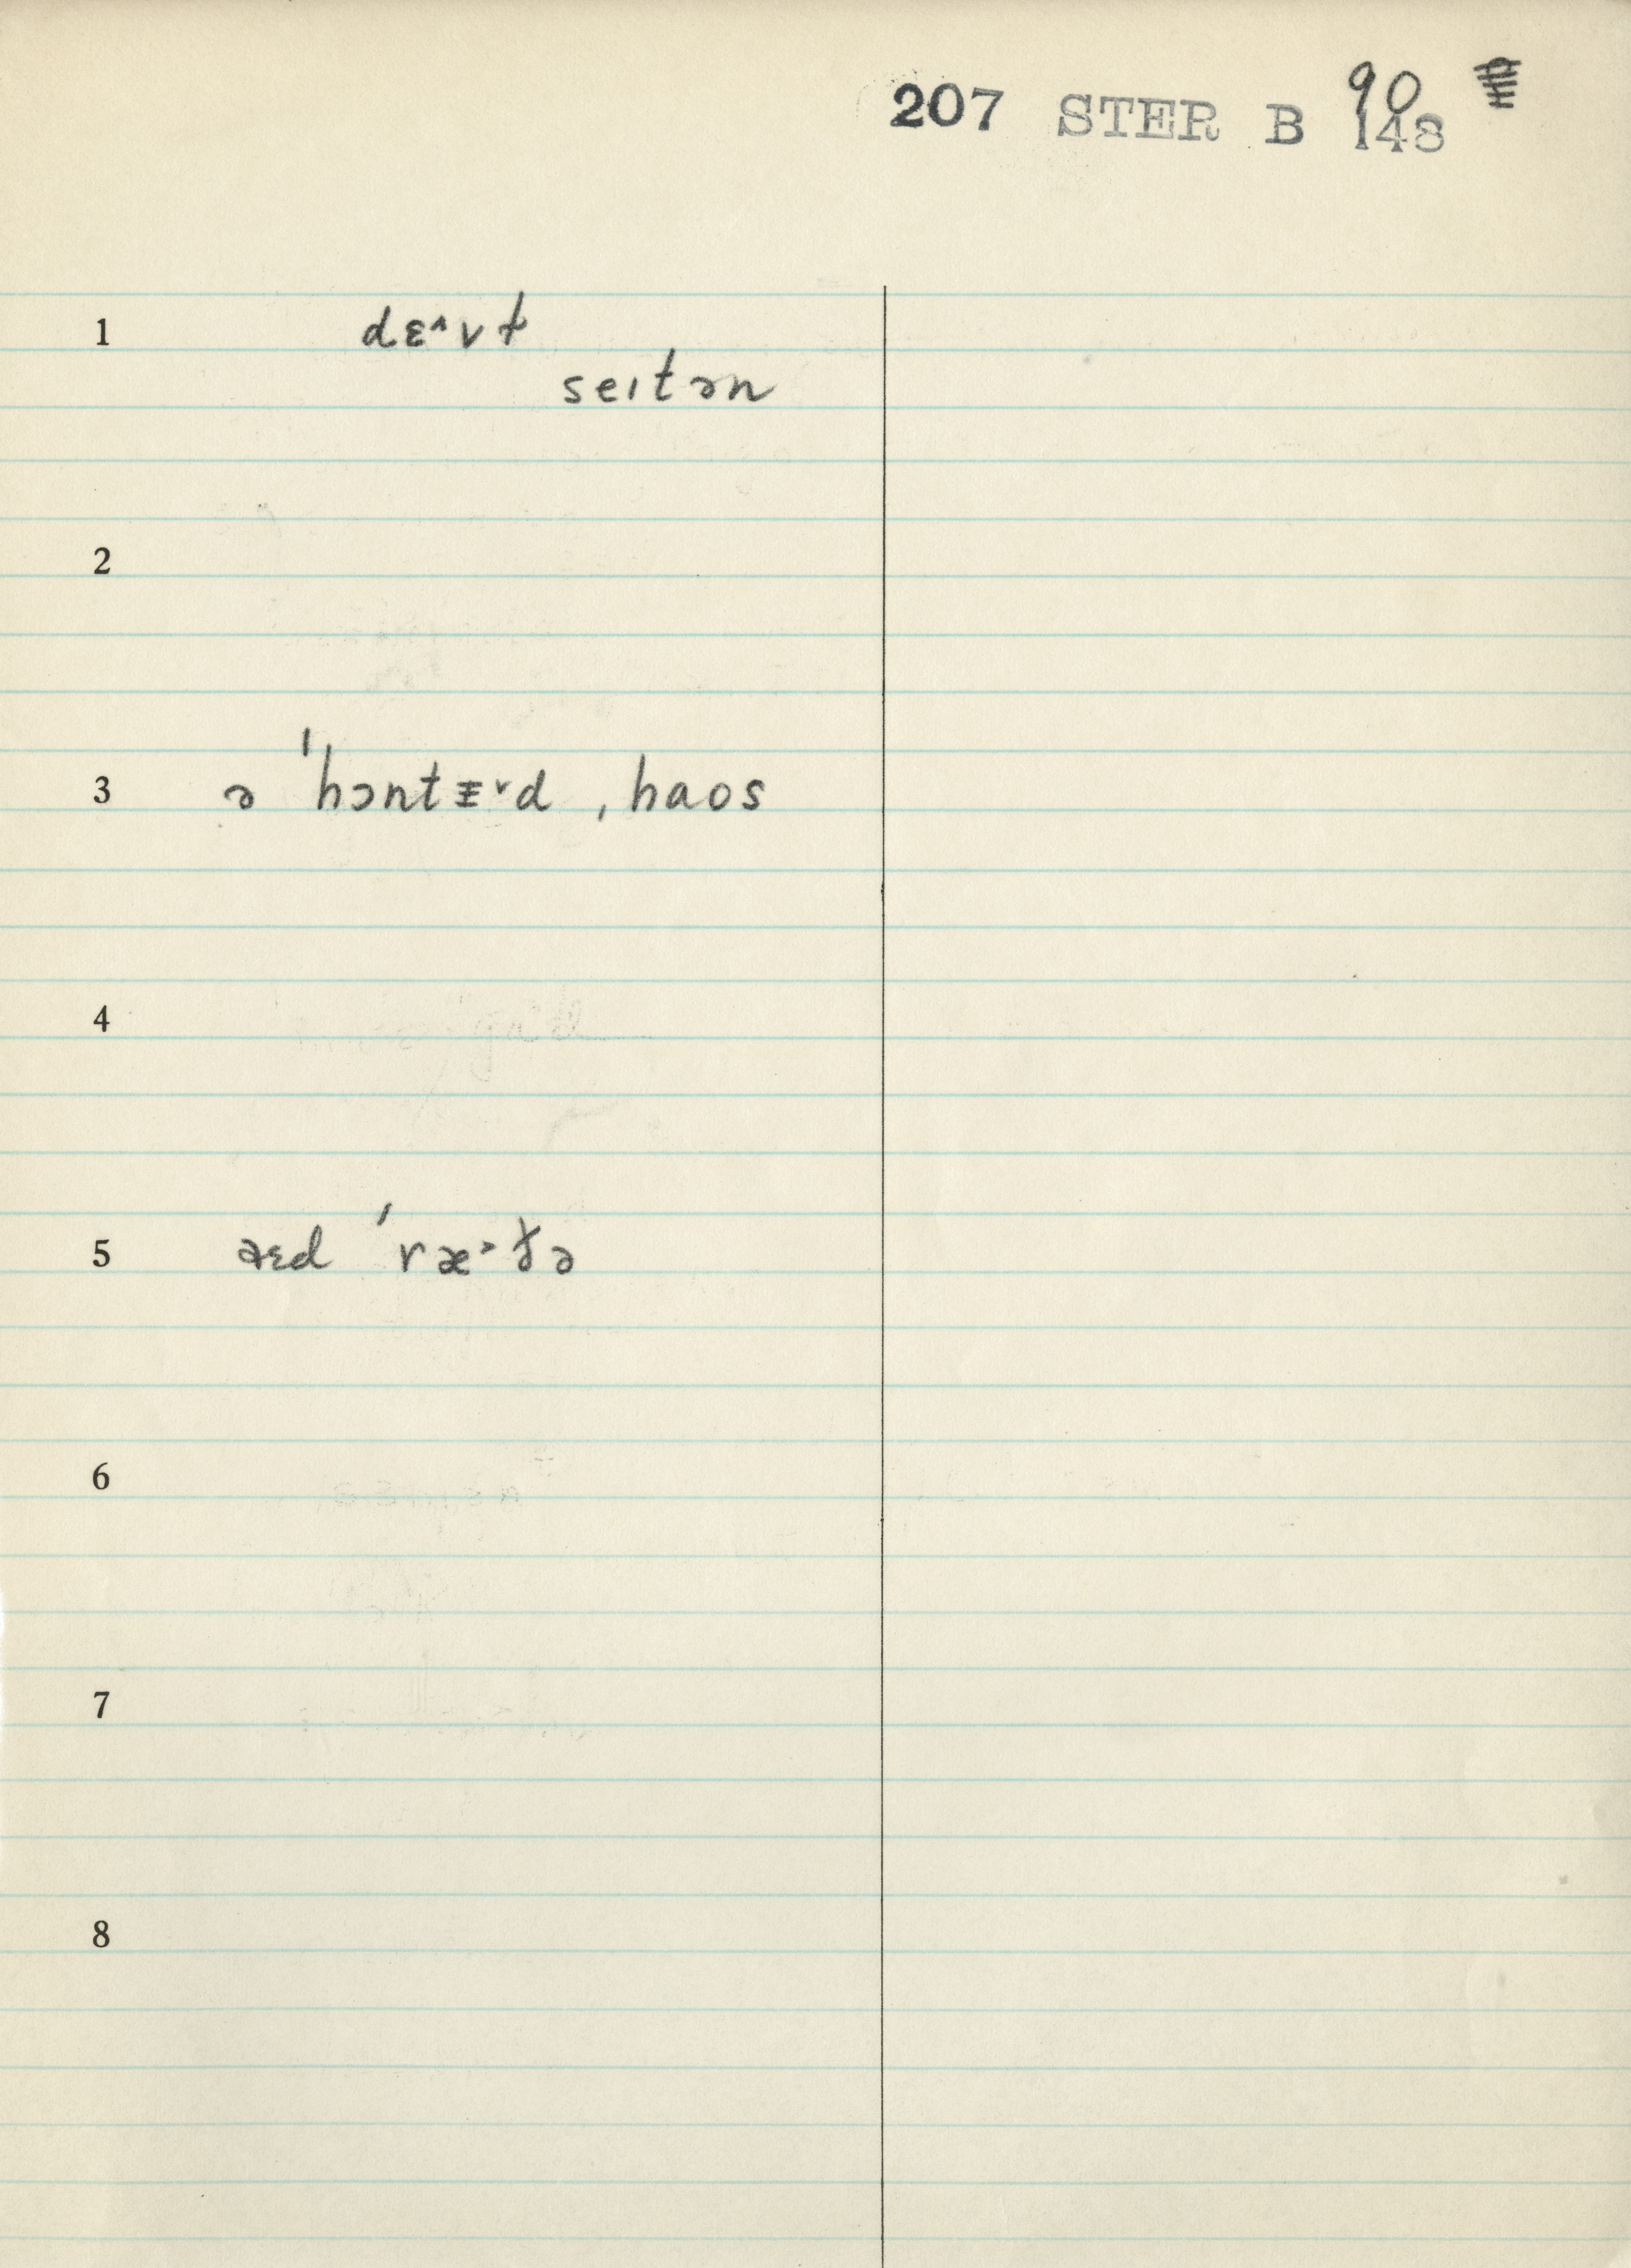 207 STER B 148
90
1 dɛ˄vɫ
seıtən
2
3 ə ˈhɔntᵻ˅d ˌhaos
4
5 aɛd ˈræ˃ðə
6
7
8